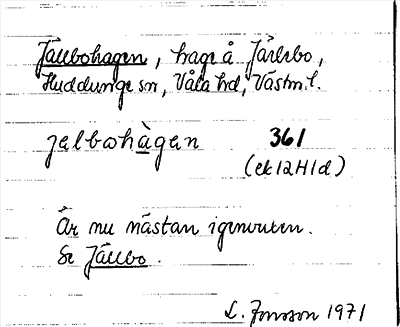 Jällbohagen, hage å Järlebo,
Huddunge sn, Våla hd, Västm.l.
jelbohàgan 361
(ek 12H1d)
Är nu nästan igenvuxen.
Se Jällbo.
L. Jonsson 1971